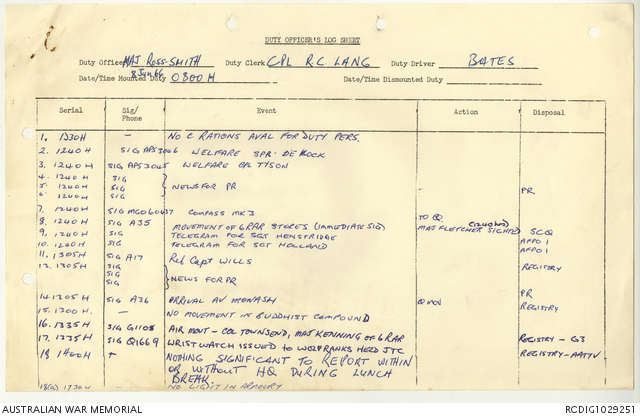 DUTY OFFICER'S LOG SHEET
Duty Officer MAJ ROSS-SMITH Duty Clerk CPL R.C. LANG Duty Driver BATES
Date/Time Mounted Duty 8 Jun 66 0800H Date/Time Dismounted Duty
Serial Sig/Phone Event Action Disposal
1. 1230H — NO C RATIONS AVAL FOR DUTY PERS.
2. 1240H SIG APS3046 WELFARE SPR. DE KOCK
3. 1240H SIG APS3045 WELFARE CPL TYSON
4. 1240H SIG
5. 1240H SIG NEWS FOR PR - PR
6. 1240H SIG
7. 1240H SIG MGO60437 COMPASS MK3 TO Q.
8. 1240H SIG A35 MOVEMENT OF 6RAR STORES (IMMEDIATE SIG) MAJ FLETCHER SIGHTED
9. 1240H SIG TELEGRAM FOR SGT HENSTRIDGE
10. 1240H SIG TELEGRAM FOR SGT HOLLAND AFPO 1
11. 1305H SIG A17 Rel Capt WILLS AFPO 1
12. 1305H SIG REGISTRY
SIG NEWS FOR PR
SIG PR
14. 1305H SIG A36 ARRIVAL AV MONASH Q MOV REGISTRY
15. 1300H. — NO MOVEMENT IN BUDDHIST COMPOUND
16. 1335H SIG G1108 AIR MOVT - COL TOWNSEND, MAJ KENNING OF 6 RAR
17. 1335H SIG Q1669 WRISTWATCH ISSUED TO HELD JTC REGISTRY - G3
18 1400H NOTHING SIGNIFICANT TO REPORT WITHIN REGISTRY - AATTV
OR WITHOUT HQ DURING LUNCH
BREAK.
18(a) 1730H NO LIGHT IN ARMOURY
AUSTRALIAN WAR MEMORIAL RCDIG1029251